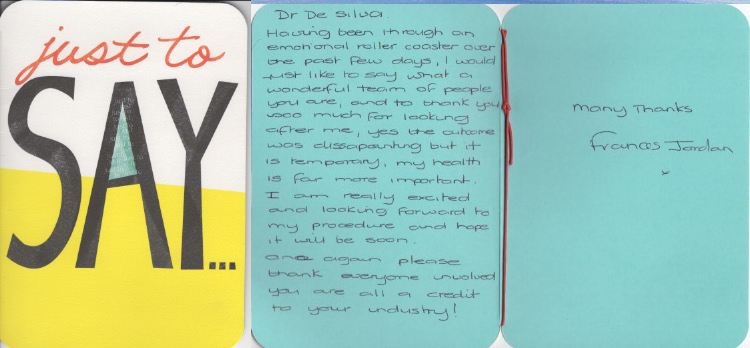 just to
SAY...
Dr De Silva
Having been through an
emotional roller coaster over
the past few days, I would
just like to say what a
wonderful team of people
you are, and to thank you
sooo much for looking
after me, yes the outcome
was dissapointing but it
is temporary, my health
is far more important.
I am really excited
and looking forward to
my procedure and hope
it will be soon.
Once again please
thank everyone involved
you are all a credit
to your industry!
Many Thanks
Frances Jordan
x